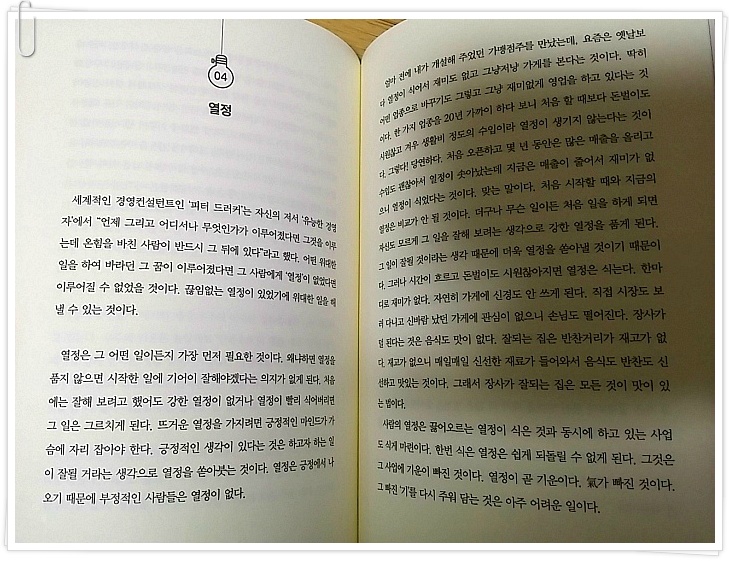 04
열정
세계적인 경영컨설턴트인 ‘피터 드러커’는 자신의 저서 ‘유능한 경영
자’에서 “언제 그리고 어디서나 무엇인가가 이루어졌다면 그것을 이루
는데 온힘을 바친 사람이 반드시 그 뒤에 있다”라고 했다. 어떤 위대한
일을 하여 바라던 그 꿈이 이루어졌다면 그 사람에게 ‘열정’이 없었다면
이루어질 수 없었을 것이다. 끊임없는 열정이 있었기에 위대한 일을 해
낼 수 있는 것이다.
열정은 그 어떤 일이든지 가장 먼저 필요한 것이다. 왜냐하면 열정을
품지 않으면 시작한 일에 기어이 잘해야겠다는 의지가 없게 된다. 처음
에는 잘해 보려고 했어도 강한 열정이 없거나 열정이 빨리 식어버리면
그 일은 그르치게 된다. 뜨거운 열정을 가지려면 긍정적인 마인드가 가
슴에 자리 잡아야 한다. 긍정적인 생각이 있다는 것은 하고자 하는 일
이 잘될 거라는 생각으로 열정을 쏟아붓는 것이다. 열정은 긍정에서 나
오기 때문에 부정적인 사람들은 열정이 없다.
얼마 전에 내가 개설해 주었던 가맹점주를 만났는데, 요즘은 옛날보
다 열정이 식어서 재미도 없고 그냥저냥 가게를 본다는 것이다. 딱히
어떤 업종으로 바꾸기도 그렇고 그냥 재미없게 영업을 하고 있다는 것
이다. 한 가지 업종을 20년 가까이 하다 보니 처음 할 때보다 돈벌이도
시원찮고 겨우 생활비 정도의 수입이라 열정이 생기지 않는다는 것이
다. 그렇다! 당연하다. 처음 오픈하고 몇 년 동안은 많은 매출을 올리고
수입도 괜찮아서 열정이 솟아났는데 지금은 매출이 줄어서 재미가 없
으니 열정이 식었다는 것이다. 맞는 말이다. 처음 시작할 때와 지금의
열정은 비교가 안 될 것이다. 더구나 무슨 일이든 처음 일을 하게 되면
자신도 모르게 그 일을 잘해 보려는 생각으로 강한 열정을 품게 된다.
그 일이 잘될 것이라는 생각 때문에 더욱 열정을 쏟아낼 것이기 때문이
다. 그러나 시간이 흐르고 돈벌이도 시원찮아지면 열정은 식는다. 한마
디로 재미가 없다. 자연히 가게에 신경도 안 쓰게 된다. 직접 시장도 보
러 다니고 신바람 났던 가게에 관심이 없으니 손님도 떨어진다. 장사가
덜 된다는 것은 음식도 맛이 없다. 잘되는 집은 반찬거리가 재고가 없
다. 재고가 없으니 매일매일 신선한 재료가 들어와서 음식도 반찬도 신
선하고 맛있는 것이다. 그래서 장사가 잘되는 집은 모든 것이 맛이 있
는 법이다.
사람의 열정은 끓어오르는 열정이 식은 것과 동시에 하고 있는 사업
도 식게 마련이다. 한번 식은 열정은 쉽게 되돌릴 수 없게 된다. 그것은
그 사업에 기운이 빠진 것이다. 열정이 곧 기운이다. 氣가 빠진 것이다.
그 빠진 ‘기’를 다시 주워 담는 것은 아주 어려운 일이다.